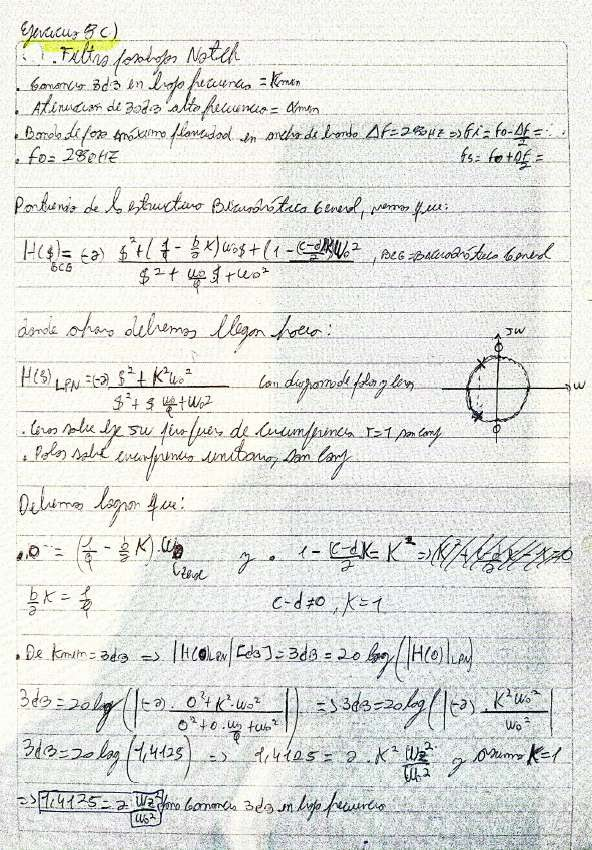 Ejercicio 5c)
Filtro pasabajos Notch
. Ganancia 3dB en baja frecuencia = Kmin
. Atenuacion de 30dB alta frecuencia = αmin
. Banda de paso máxima planicidad en ancho de banda ΔF = 280HZ => Fi = Fo - ΔF/2 = ...
. FO = 280HZ fs = Fo + ΔF/2 =
Partiendo de la estructura Bicuadrática General, vemos que:
H($)BCG = (-a) $² + (1/q - b/a K) wo$ + (1 - (c-d)/2 K) Wo² / $² + wo/q $ + wo² , BCG = Bicuadrática General
donde ahora debemos llegar hacia:
JW
H($)LPN = (-a) $² + K² wo² / $² + $ wo/q + wo² con diagrama de polos y ceros
W
. Ceros sobre eje JW fuera de circunferencia r=1 son conj
. Polos sobre circunferencia unitaria, son conj
Debemos lograr que:
. 0 = (1/q - b/a K) . Wo y . 1 - (c-d)/2 K = K² =>
b/a K = 1/q c-d≠0 , K=1
. De Kmin = 3dB => |H(0)LPN| [dB] = 3dB = 20 log (|H(0)|LPN)
3dB = 20 log (|(-a) . 0² + K² . wo² / 0² + 0 . wo/q + wo²|) => 3dB = 20 log (|(-a) . K² wo² / wo²|)
3dB = 20 log (1,4125) => 1,4125 = a . K² Wz²/Wo² y asumo K=1
=> 1,4125 = a Wz²/Wo² para Ganancia 3dB en baja frecuencia